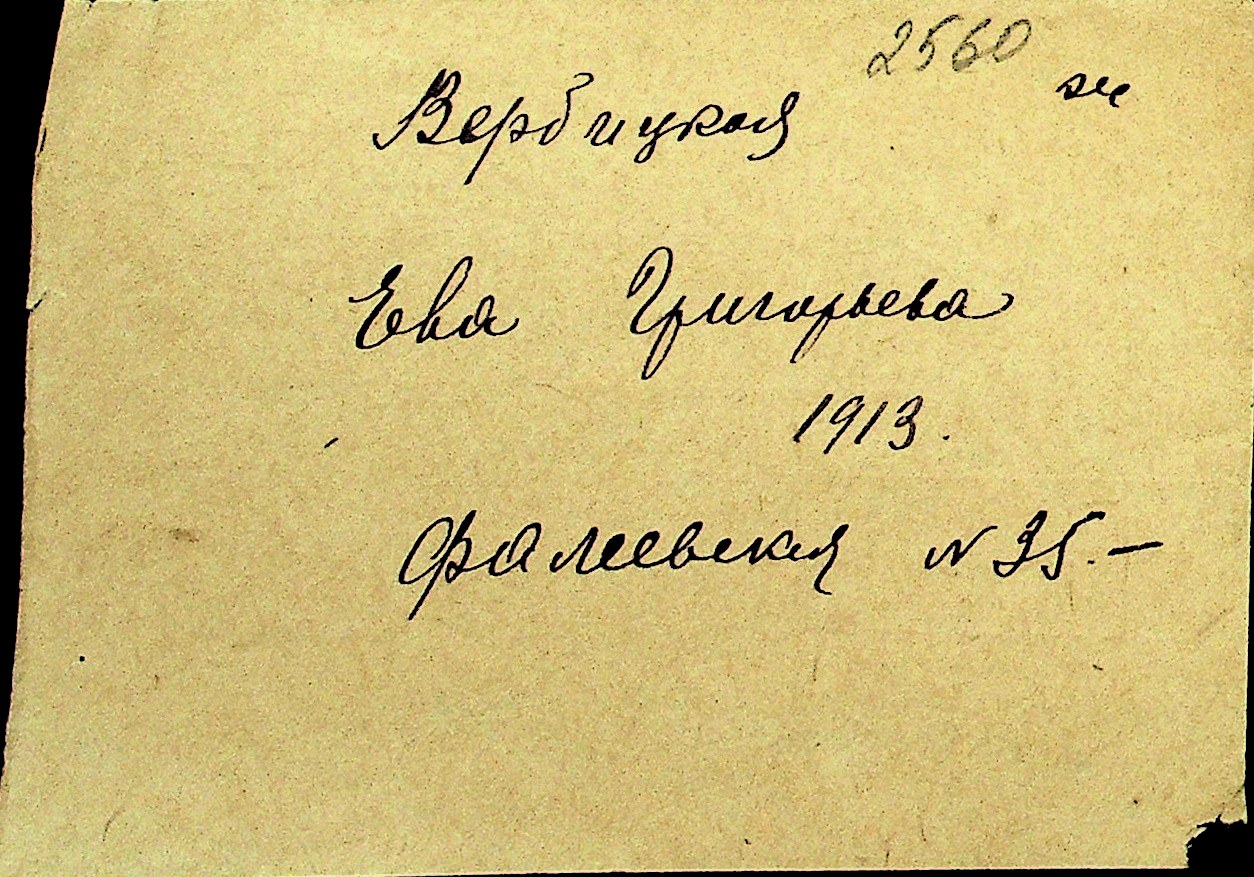 2560
Вербицкая ж
Ева Григорьева
1913.
Фалеевская N 35.—